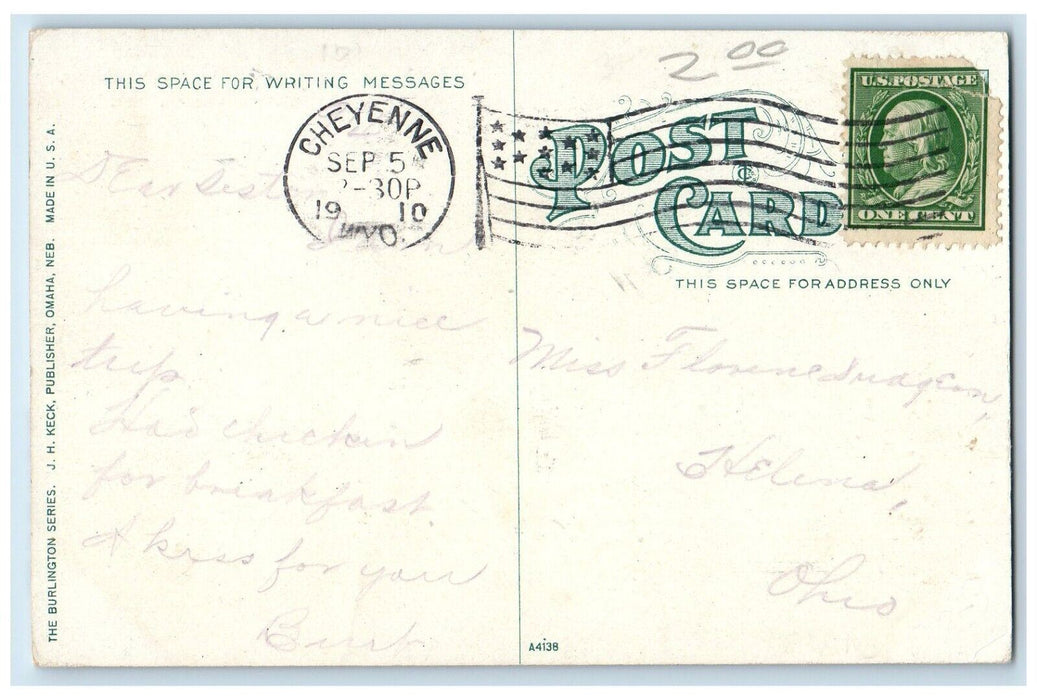 2 00
THIS SPACE FOR WRITING MESSAGES
CHEYENNE
SEP 5
-30P
19 10
WYO.
POST CARD
U.S. POSTAGE
ONE CENT
THIS SPACE FOR ADDRESS ONLY
Dear Sister
having a nice
trip
Had chicken
for breakfast
A kiss for you
Miss Florence
Helena,
Ohio
A4138
THE BURLINGTON SERIES. J. H. KECK, PUBLISHER, OMAHA, NEB. MADE IN U. S. A.